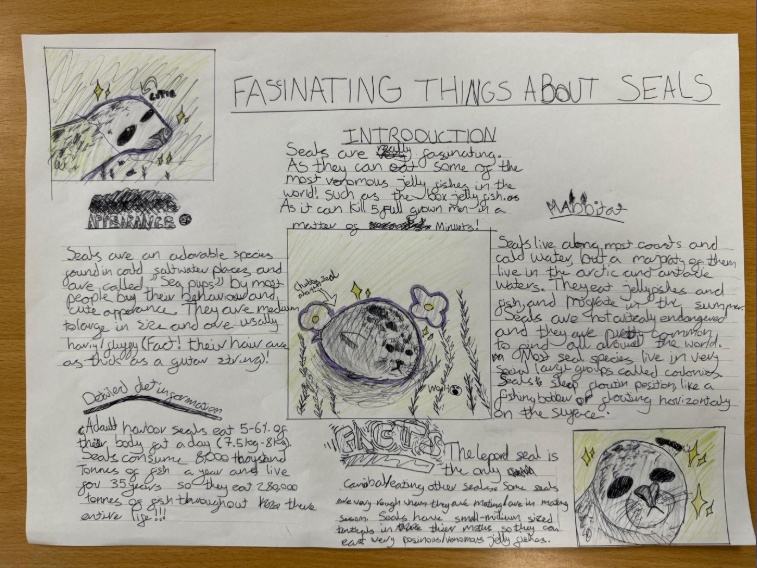 FASINATING THINGS ABOUT SEALS
CUTE
INTRODUCTION
Seals are really fasinating.
As they can eat some of the
most venomous jelly fishes in the
world! Such as the box jelly fish. as
As it can kill 5 full grown men in a
matter of Minuets!
APPEARANCE
Seals are an adorable species
found in cold saltwater places, and
are called "Sea pups" by most
people buy their behaviour and
cute apperance. They are medium
to large in size and are usually
hairy/fluffy (Fact! their hair are
as thick as a guitar string)!
Chubby seal
Habbitat
Seals live along most coasts and
cold water, but a marjoty of them
live in the arctic and antartic
waters. They eat jellyfishes and
fish, and migrate in the summer.
Seals are not actealy endangered
and they are pretty common
to find all around the world.
Most seal species live in very
social large groups called colonies.
Seals sleep flowtin position like a
fishing bobber or flowting horizontaly
on the surface.
Detailed diet information
Adault harbor seals eat 5-6% of
their body fat a day (7.5kg-8kg).
Seals consume 8,000 thousand
Tonnes of fish a year and live
for 35 years so they eat 280,000
Tonnes of fish throughout there
entire life!!!
FUN FACTS
The lepord seal is
the only
Canibal eating other seals. Some seals
are very rough when they are mating/are in mating
season. Seals have small-midium sized
in their so they can
eat very poisinous/venomous jelly fishes.